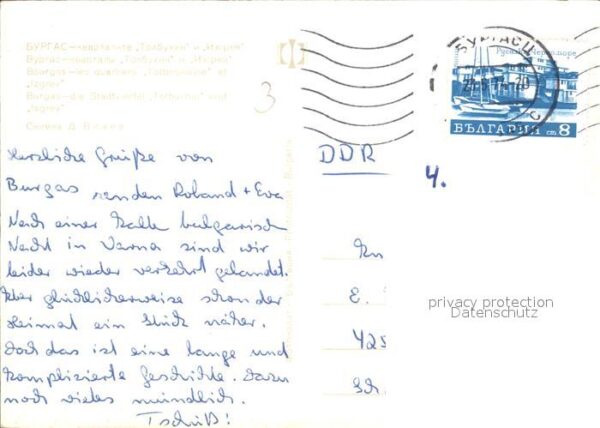 БУРГАС—кварталите „Толбухин" и „Изгрев"
Бургас—кварталы „Толбухин" и „Изгрев"
Bourgas—les quartiers „Tolboukhine" et
„Izgrev"
Burgas—die Stadtviertel „Tolbuchin" und
„Isgrev"
3
Herzliche Grüße von
Burgas senden Roland + Eva
Nach einer kalten bulgarisch
Nacht in Varna sind wir
leider wieder verkehrt gelandet.
Aber glücklicherweise schon der
Heimat ein Stück näher.
Doch das ist eine lange und
komplizierte Geschichte. Dazu
noch vieles mündlich.
Tschüß!
БУРГАС
БЪЛГАРИЯ ст 8
DDR
4.
E.
425
privacy protection
Datenschutz